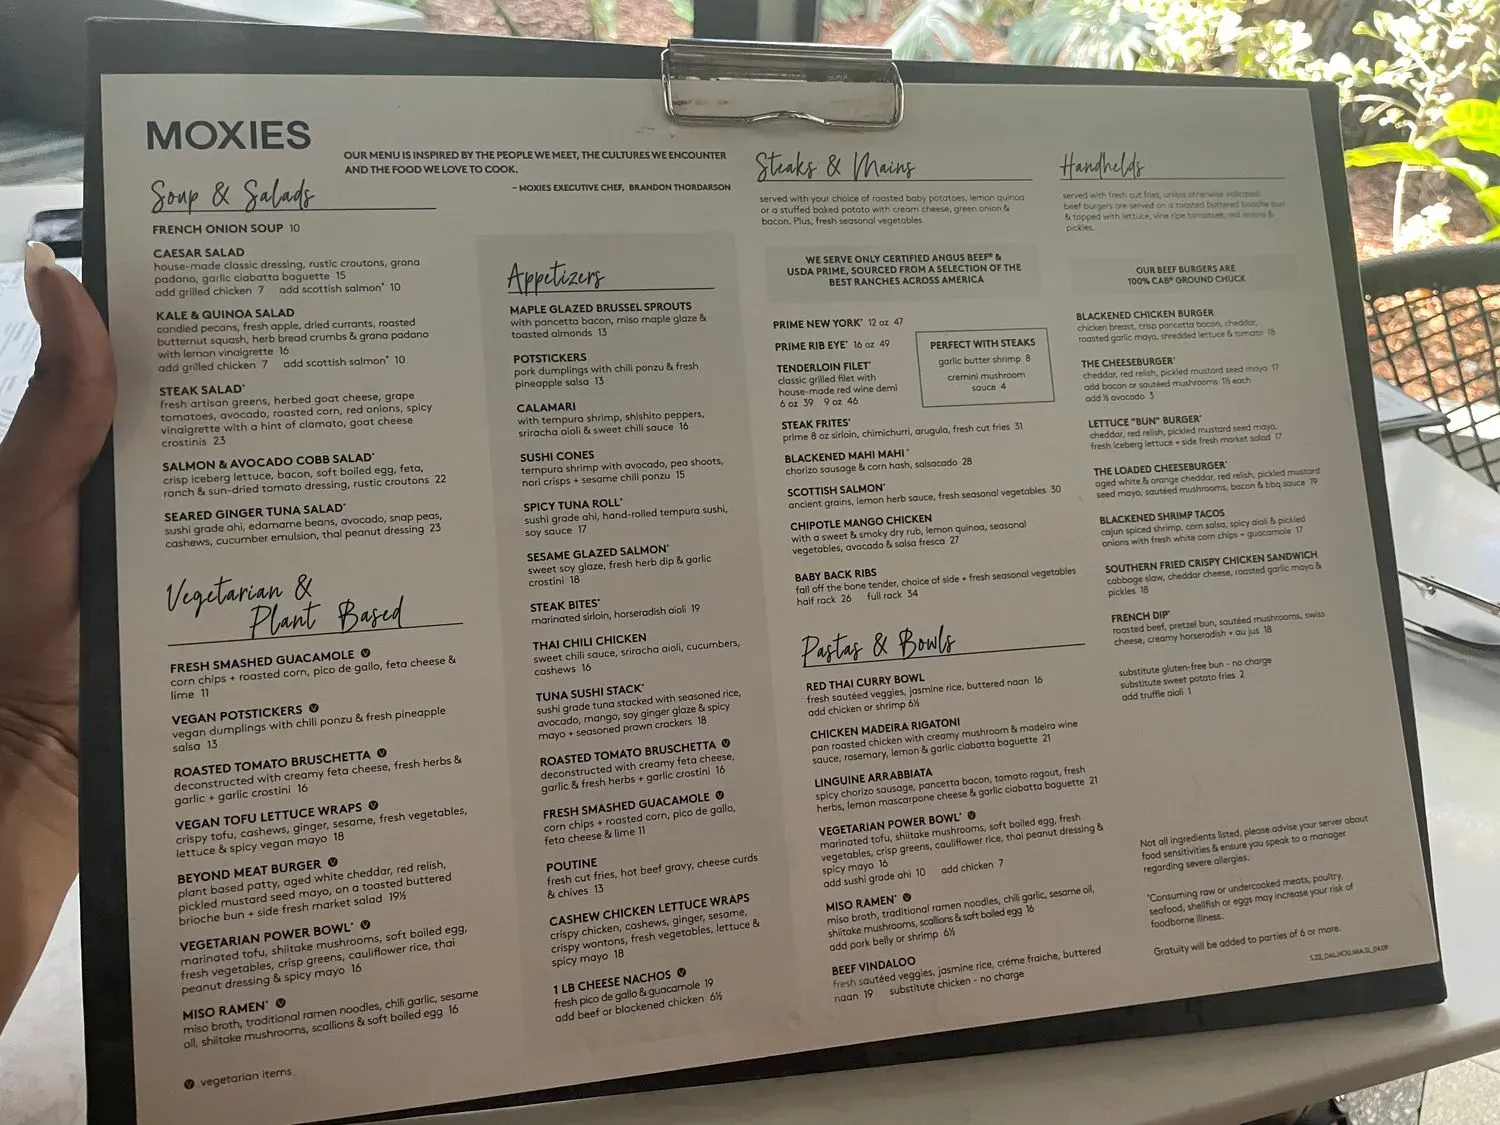 MOXIES
OUR MENU IS INSPIRED BY THE PEOPLE WE MEET, THE CULTURES WE ENCOUNTER
AND THE FOOD WE LOVE TO COOK.
– MOXIES EXECUTIVE CHEF, BRANDON THORDARSON
Soup & Salads
FRENCH ONION SOUP 10
CAESAR SALAD
house-made classic dressing, rustic croutons, grana
padano, garlic ciabatta baguette 15
add grilled chicken 7 add scottish salmon* 10
KALE & QUINOA SALAD
candied pecans, fresh apple, dried currants, roasted
butternut squash, herb bread crumbs & grana padano
with lemon vinaigrette 16
add grilled chicken 7 add scottish salmon* 10
STEAK SALAD*
fresh artisan greens, herbed goat cheese, grape
tomatoes, avocado, roasted corn, red onions, spicy
vinaigrette with a hint of clamato, goat cheese
crostinis 23
SALMON & AVOCADO COBB SALAD*
crisp iceberg lettuce, bacon, soft boiled egg, feta,
ranch & sun-dried tomato dressing, rustic croutons 22
SEARED GINGER TUNA SALAD*
sushi grade ahi, edamame beans, avocado, snap peas,
cashews, cucumber emulsion, thai peanut dressing 23
Vegetarian &
Plant Based
FRESH SMASHED GUACAMOLE V
corn chips + roasted corn, pico de gallo, feta cheese &
lime 11
VEGAN POTSTICKERS V
vegan dumplings with chili ponzu & fresh pineapple
salsa 13
ROASTED TOMATO BRUSCHETTA V
deconstructed with creamy feta cheese, fresh herbs &
garlic + garlic crostini 16
VEGAN TOFU LETTUCE WRAPS V
crispy tofu, cashews, ginger, sesame, fresh vegetables,
lettuce & spicy vegan mayo 18
BEYOND MEAT BURGER V
plant based patty, aged white cheddar, red relish,
pickled mustard seed mayo, on a toasted buttered
brioche bun + side fresh market salad 19½
VEGETARIAN POWER BOWL* V
marinated tofu, shiitake mushrooms, soft boiled egg,
fresh vegetables, crisp greens, cauliflower rice, thai
peanut dressing & spicy mayo 16
MISO RAMEN* V
miso broth, traditional ramen noodles, chili garlic, sesame
oil, shiitake mushrooms, scallions & soft boiled egg 16
V vegetarian items
Appetizers
MAPLE GLAZED BRUSSEL SPROUTS
with pancetta bacon, miso maple glaze &
toasted almonds 13
POTSTICKERS
pork dumplings with chili ponzu & fresh
pineapple salsa 13
CALAMARI
with tempura shrimp, shishito peppers,
sriracha aioli & sweet chili sauce 16
SUSHI CONES
tempura shrimp with avocado, pea shoots,
nori crisps + sesame chili ponzu 15
SPICY TUNA ROLL*
sushi grade ahi, hand-rolled tempura sushi,
soy sauce 17
SESAME GLAZED SALMON*
sweet soy glaze, fresh herb dip & garlic
crostini 18
STEAK BITES*
marinated sirloin, horseradish aioli 19
THAI CHILI CHICKEN
sweet chili sauce, sriracha aioli, cucumbers,
cashews 16
TUNA SUSHI STACK*
sushi grade tuna stacked with seasoned rice,
avocado, mango, soy ginger glaze & spicy
mayo + seasoned prawn crackers 18
ROASTED TOMATO BRUSCHETTA V
deconstructed with creamy feta cheese,
garlic & fresh herbs + garlic crostini 16
FRESH SMASHED GUACAMOLE V
corn chips + roasted corn, pico de gallo,
feta cheese & lime 11
POUTINE
fresh cut fries, hot beef gravy, cheese curds
& chives 13
CASHEW CHICKEN LETTUCE WRAPS
crispy chicken, cashews, ginger, sesame,
crispy wontons, fresh vegetables, lettuce &
spicy mayo 18
1 LB CHEESE NACHOS V
fresh pico de gallo & guacamole 19
add beef or blackened chicken 6½
Steaks & Mains
served with your choice of roasted baby potatoes, lemon quinoa
or a stuffed baked potato with cream cheese, green onion &
bacon. Plus, fresh seasonal vegetables
WE SERVE ONLY CERTIFIED ANGUS BEEF® &
USDA PRIME, SOURCED FROM A SELECTION OF THE
BEST RANCHES ACROSS AMERICA
PRIME NEW YORK* 12 oz 47
PRIME RIB EYE* 16 oz 49
TENDERLOIN FILET*
classic grilled filet with
house-made red wine demi
6 oz 39 9 oz 46
PERFECT WITH STEAKS
garlic butter shrimp 8
cremini mushroom
sauce 4
STEAK FRITES*
prime 8 oz sirloin, chimichurri, arugula, fresh cut fries 31
BLACKENED MAHI MAHI*
chorizo sausage & corn hash, salsacado 28
SCOTTISH SALMON*
ancient grains, lemon herb sauce, fresh seasonal vegetables 30
CHIPOTLE MANGO CHICKEN
with a sweet & smoky dry rub, lemon quinoa, seasonal
vegetables, avocado & salsa fresca 27
BABY BACK RIBS
fall off the bone tender, choice of side + fresh seasonal vegetables
half rack 26 full rack 34
Pastas & Bowls
RED THAI CURRY BOWL
fresh sautéed veggies, jasmine rice, buttered naan 16
add chicken or shrimp 6½
CHICKEN MADEIRA RIGATONI
pan roasted chicken with creamy mushroom & madeira wine
sauce, rosemary, lemon & garlic ciabatta baguette 21
LINGUINE ARRABBIATA
spicy chorizo sausage, pancetta bacon, tomato ragout, fresh
herbs, lemon mascarpone cheese & garlic ciabatta baguette 21
VEGETARIAN POWER BOWL* V
marinated tofu, shiitake mushrooms, soft boiled egg, fresh
vegetables, crisp greens, cauliflower rice, thai peanut dressing &
spicy mayo 16
add sushi grade ahi 10 add chicken 7
MISO RAMEN* V
miso broth, traditional ramen noodles, chili garlic, sesame oil,
shiitake mushrooms, scallions & soft boiled egg 16
add pork belly or shrimp 6½
BEEF VINDALOO
fresh sautéed veggies, jasmine rice, créme fraiche, buttered
naan 19 substitute chicken - no charge
Handhelds
served with fresh cut fries, unless otherwise indicated.
beef burgers are served on a toasted buttered brioche bun
& topped with lettuce, vine ripe tomatoes, red onions &
pickles.
OUR BEEF BURGERS ARE
100% CAB® GROUND CHUCK
BLACKENED CHICKEN BURGER
chicken breast, crisp pancetta bacon, cheddar,
roasted garlic mayo, shredded lettuce & tomato 18
THE CHEESEBURGER*
cheddar, red relish, pickled mustard seed mayo 17
add bacon or sautéed mushrooms 1½ each
add ½ avocado 3
LETTUCE "BUN" BURGER*
cheddar, red relish, pickled mustard seed mayo,
fresh iceberg lettuce + side fresh market salad 17
THE LOADED CHEESEBURGER*
aged white & orange cheddar, red relish, pickled mustard
seed mayo, sautéed mushrooms, bacon & bbq sauce 19
BLACKENED SHRIMP TACOS
cajun spiced shrimp, corn salsa, spicy aioli & pickled
onions with fresh white corn chips + guacamole 17
SOUTHERN FRIED CRISPY CHICKEN SANDWICH
cabbage slaw, cheddar cheese, roasted garlic mayo &
pickles 18
FRENCH DIP*
roasted beef, pretzel bun, sautéed mushrooms, swiss
cheese, creamy horseradish + au jus 18
substitute gluten-free bun - no charge
substitute sweet potato fries 2
add truffle aioli 1
Not all ingredients listed, please advise your server about
food sensitivities & ensure you speak to a manager
regarding severe allergies.
*Consuming raw or undercooked meats, poultry,
seafood, shellfish or eggs may increase your risk of
foodborne illness.
Gratuity will be added to parties of 6 or more.